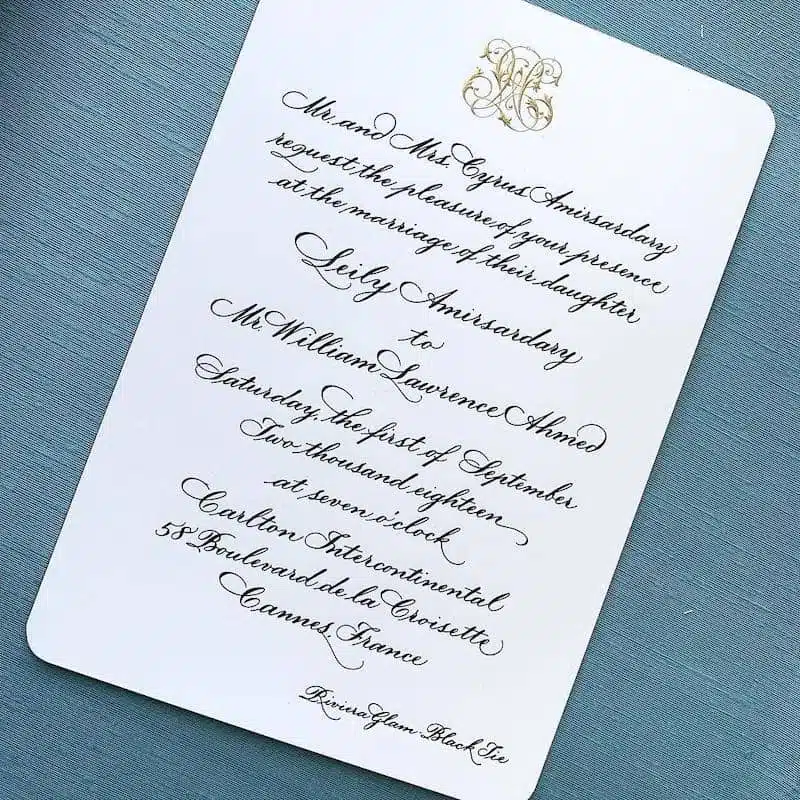 Mr. and Mrs. Cyrus Amirsardary
request the pleasure of your presence
at the marriage of their daughter
Leily Amirsardary
to
Mr. William Lawrence Ahmed
Saturday, the first of September
Two thousand eighteen
at seven o'clock
Carlton Intercontinental
58 Boulevard de la Croisette
Cannes, France
Riviera Glam Black Tie